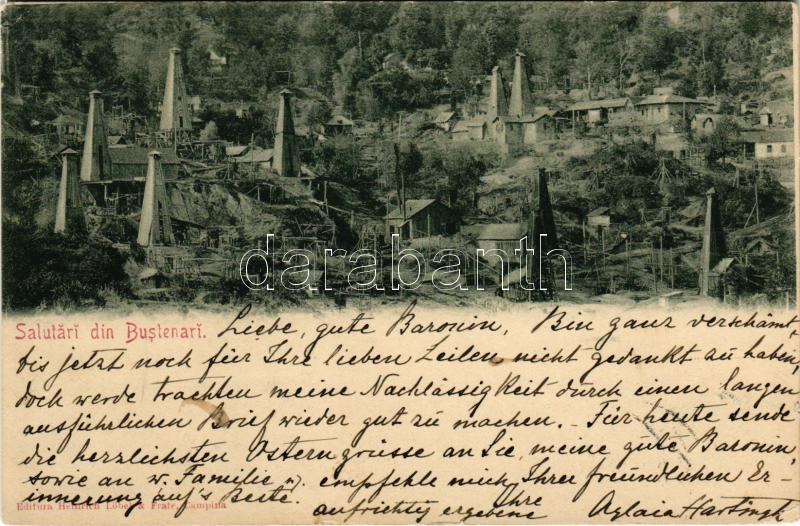 darabanth
Salutărĭ din Buștenarĭ. Liebe, gute Baronin, Bin ganz verschämt,
bis jetzt noch für Ihre lieben Zeilen nicht gedankt zu haben,
doch werde trachten meine Nachlässigkeit durch einen langen
ausführlichen Brief wieder gut zu machen. – Für heute sende
die herzlichsten Ostergrüsse an Sie, meine gute Baronin,
sowie an w. Familie u. empfehle mich Ihrer freundlichen Er-
innerung auf's Beste. aufrichtig ergebene Ihre Aglaia
Editura Heinrich Löbel & Frate, Campina